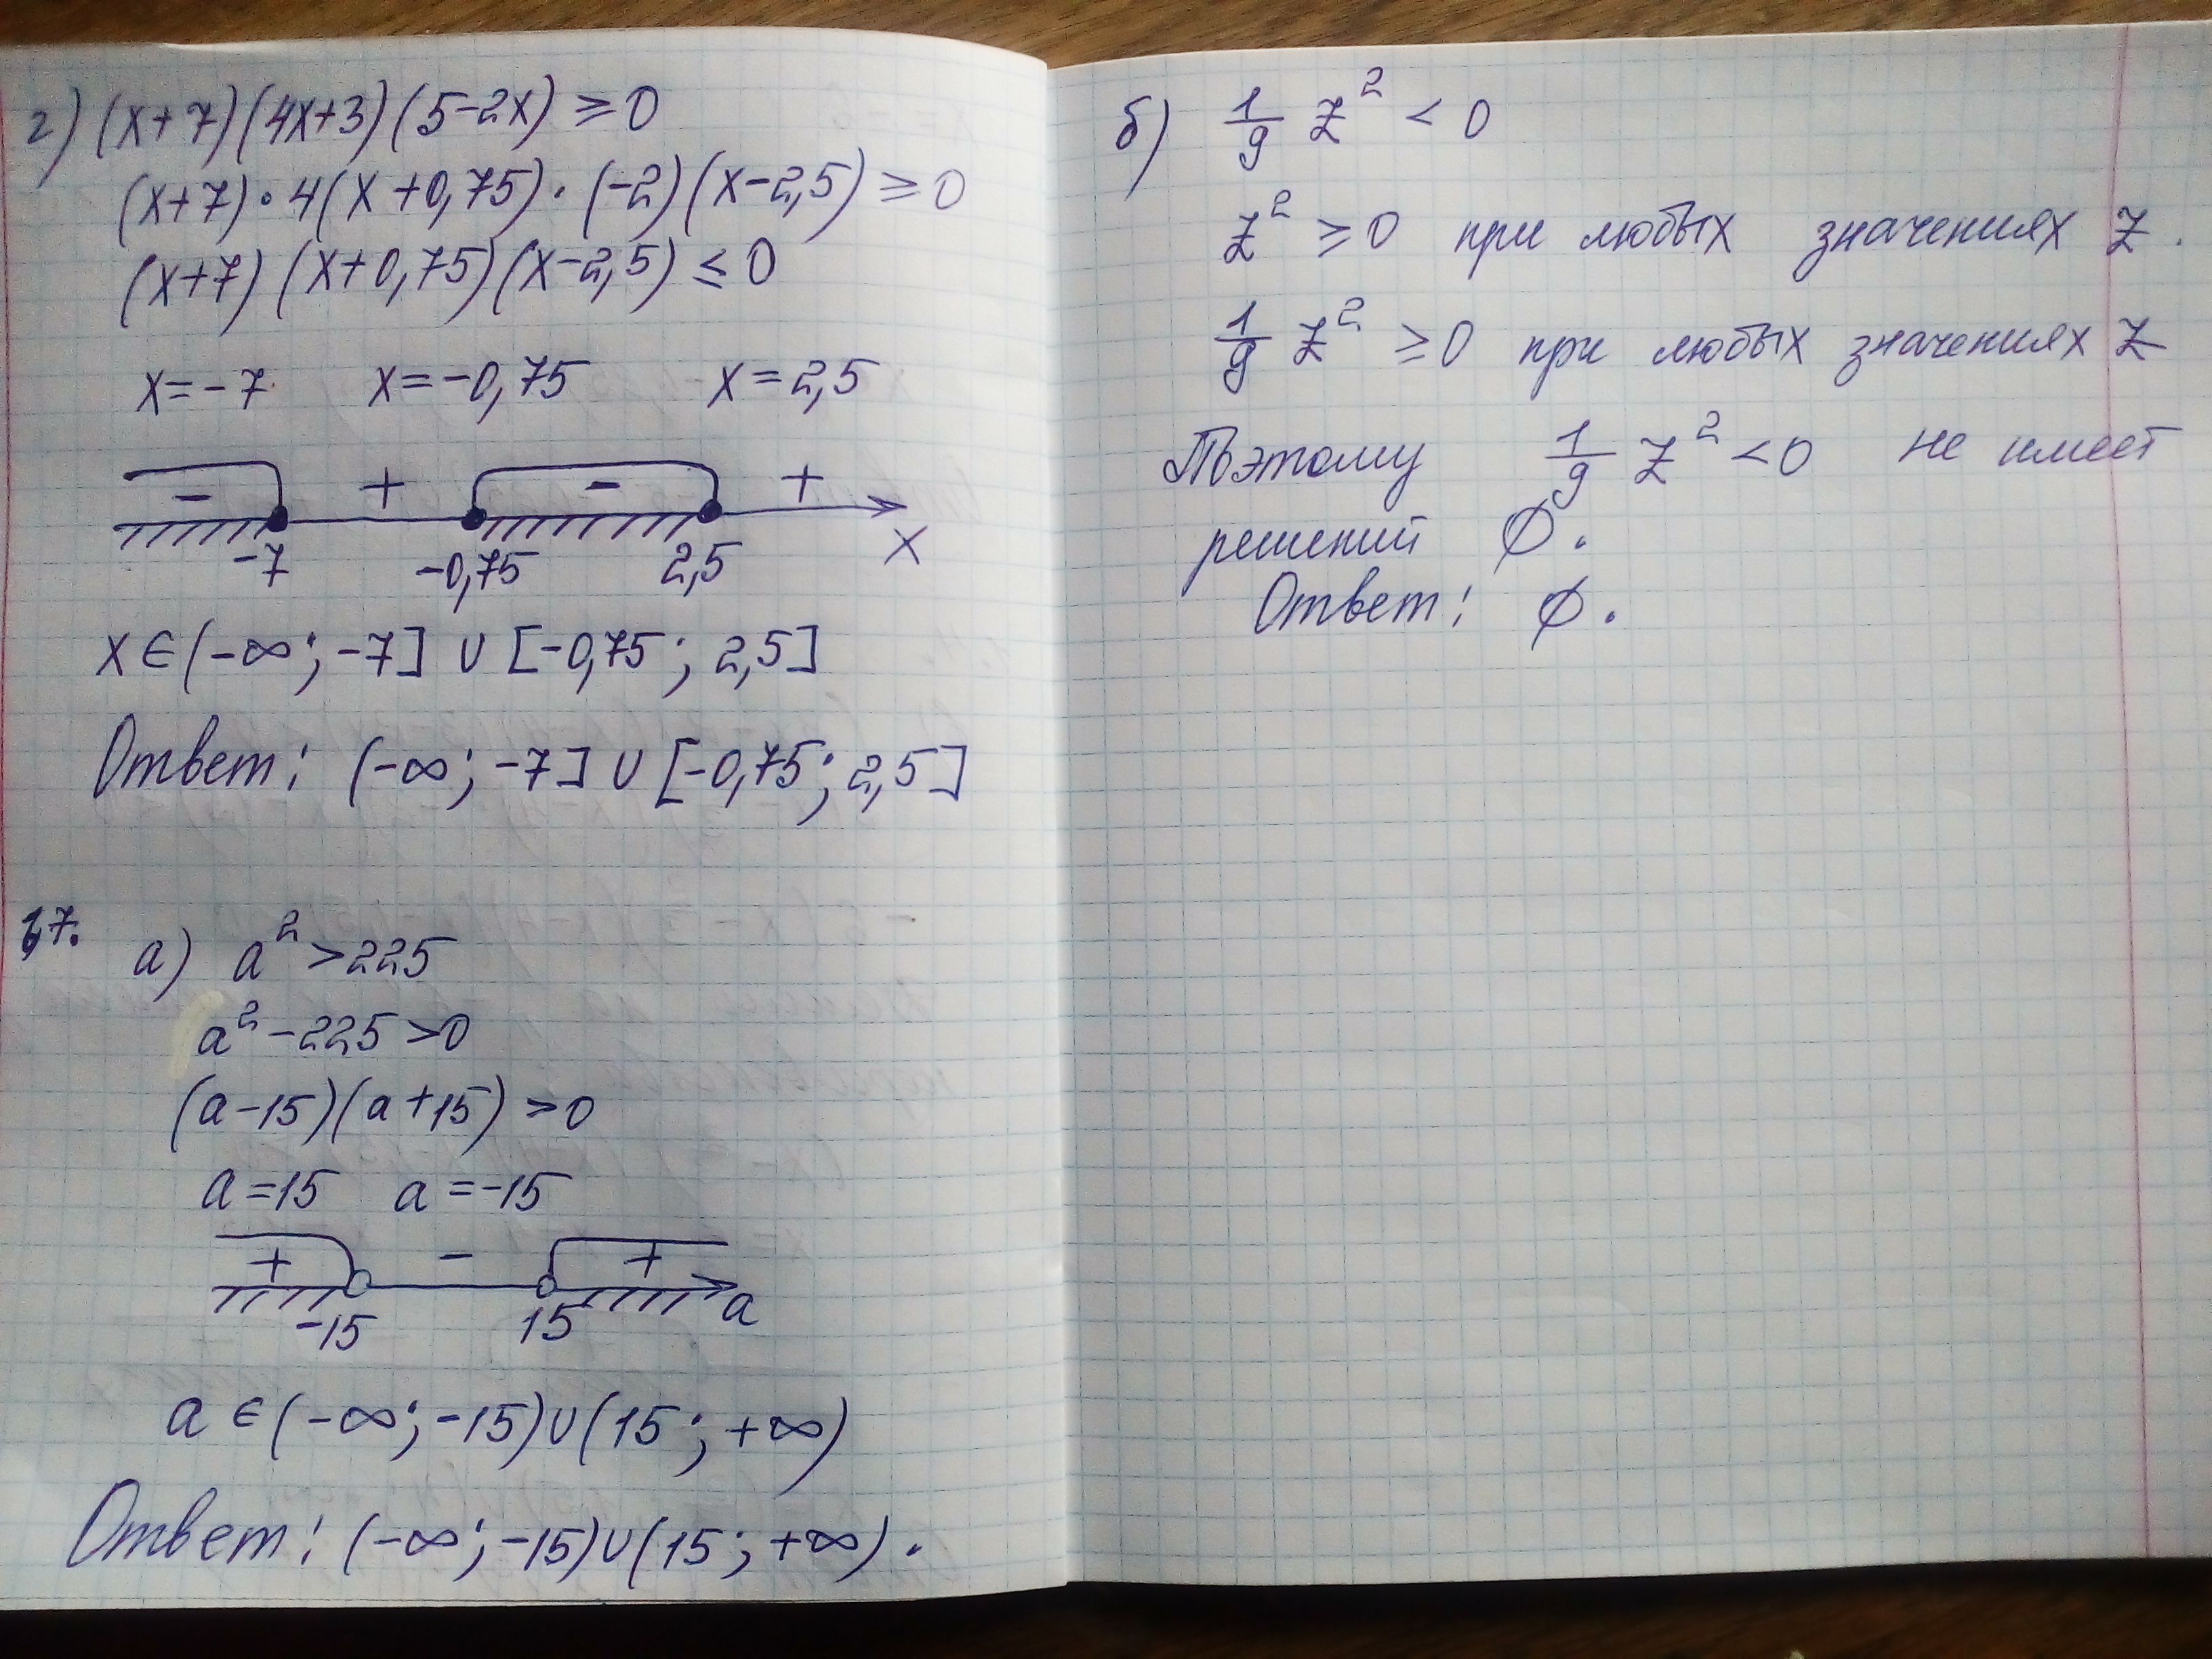 г) (x+7)(4x+3)(5-2x) ≥ 0
(x+7)·4(x+0,75)·(-2)(x-2,5) ≥ 0
(x+7)(x+0,75)(x-2,5) ≤ 0
x=-7 x=-0,75 x=2,5
- + - +
-7 -0,75 2,5 x
x∈(-∞;-7] ∪ [-0,75; 2,5]
Ответ: (-∞; -7] ∪ [-0,75; 2,5]
17.
а) a² > 225
a² - 225 > 0
(a-15)(a+15) > 0
a=15 a=-15
+ - +
-15 15 a
a∈(-∞;-15)∪(15; +∞)
Ответ: (-∞; -15)∪(15; +∞).
б) 1/9 z² < 0
z² ≥ 0 при любых значениях z.
1/9 z² ≥ 0 при любых значениях z
Поэтому 1/9 z² < 0 не имеет
решений ∅.
Ответ: ∅.